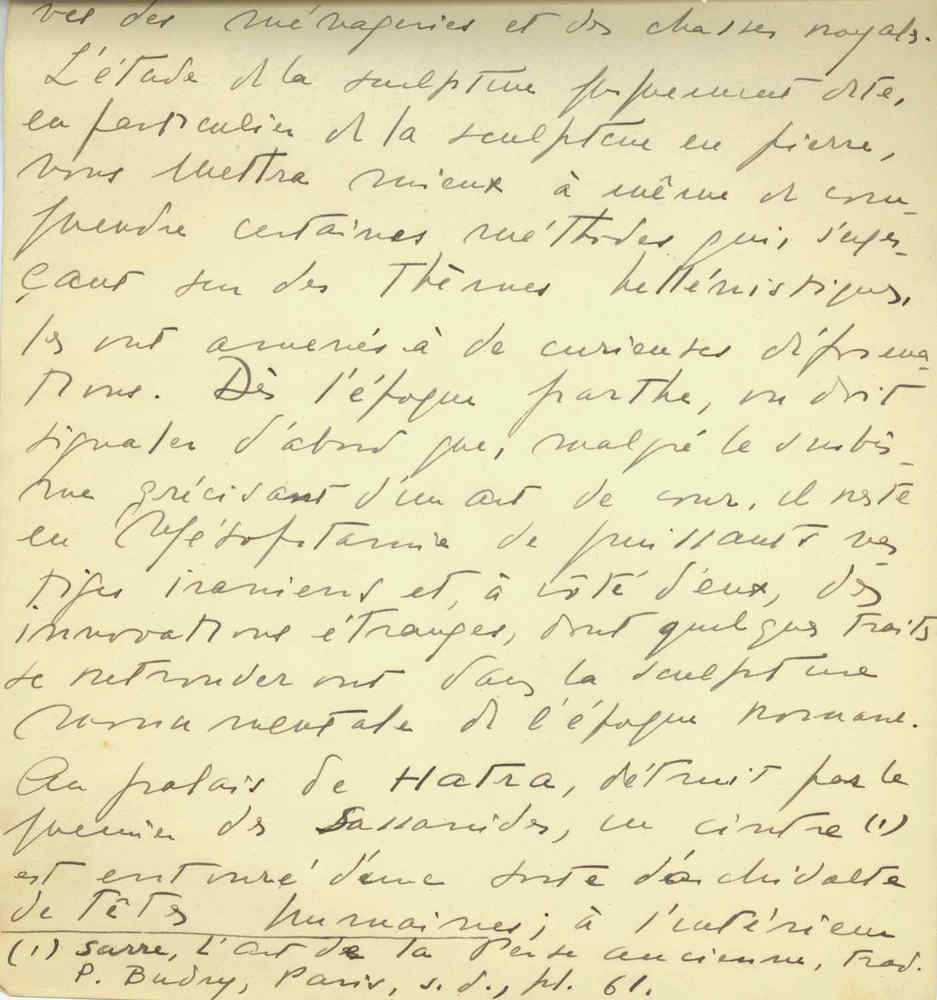 ves des ménageries et des chasses royales.
L'étude de la sculpture proprement dite,
en particulier de la sculpture en pierre,
nous mettra mieux à même de com-
prendre certaines méthodes qui, s'exer-
çant sur des thèmes hellénistiques,
les ont amenés à de curieuses déforma-
tions. Dès l'époque parthe, on doit
signaler d'abord que, malgré le snobis-
me grécisant d'un art de cour, il reste
en Mésopotamie de puissants ves
tiges iraniens et, à côté d'eux, des
innovations étranges, dont quelques traits
se retrouveront dans la sculpture
monumentale de l'époque romane.
Au palais de Hatra, détruit par le
premier des Sassanides, un cintre (1)
est entouré d'une sorte d'archivolte
de têtes humaines; à l'intérieur
(1) Sarre, L'art de la Perse ancienne, trad.
P. Budry, Paris, s.d., pl. 61.